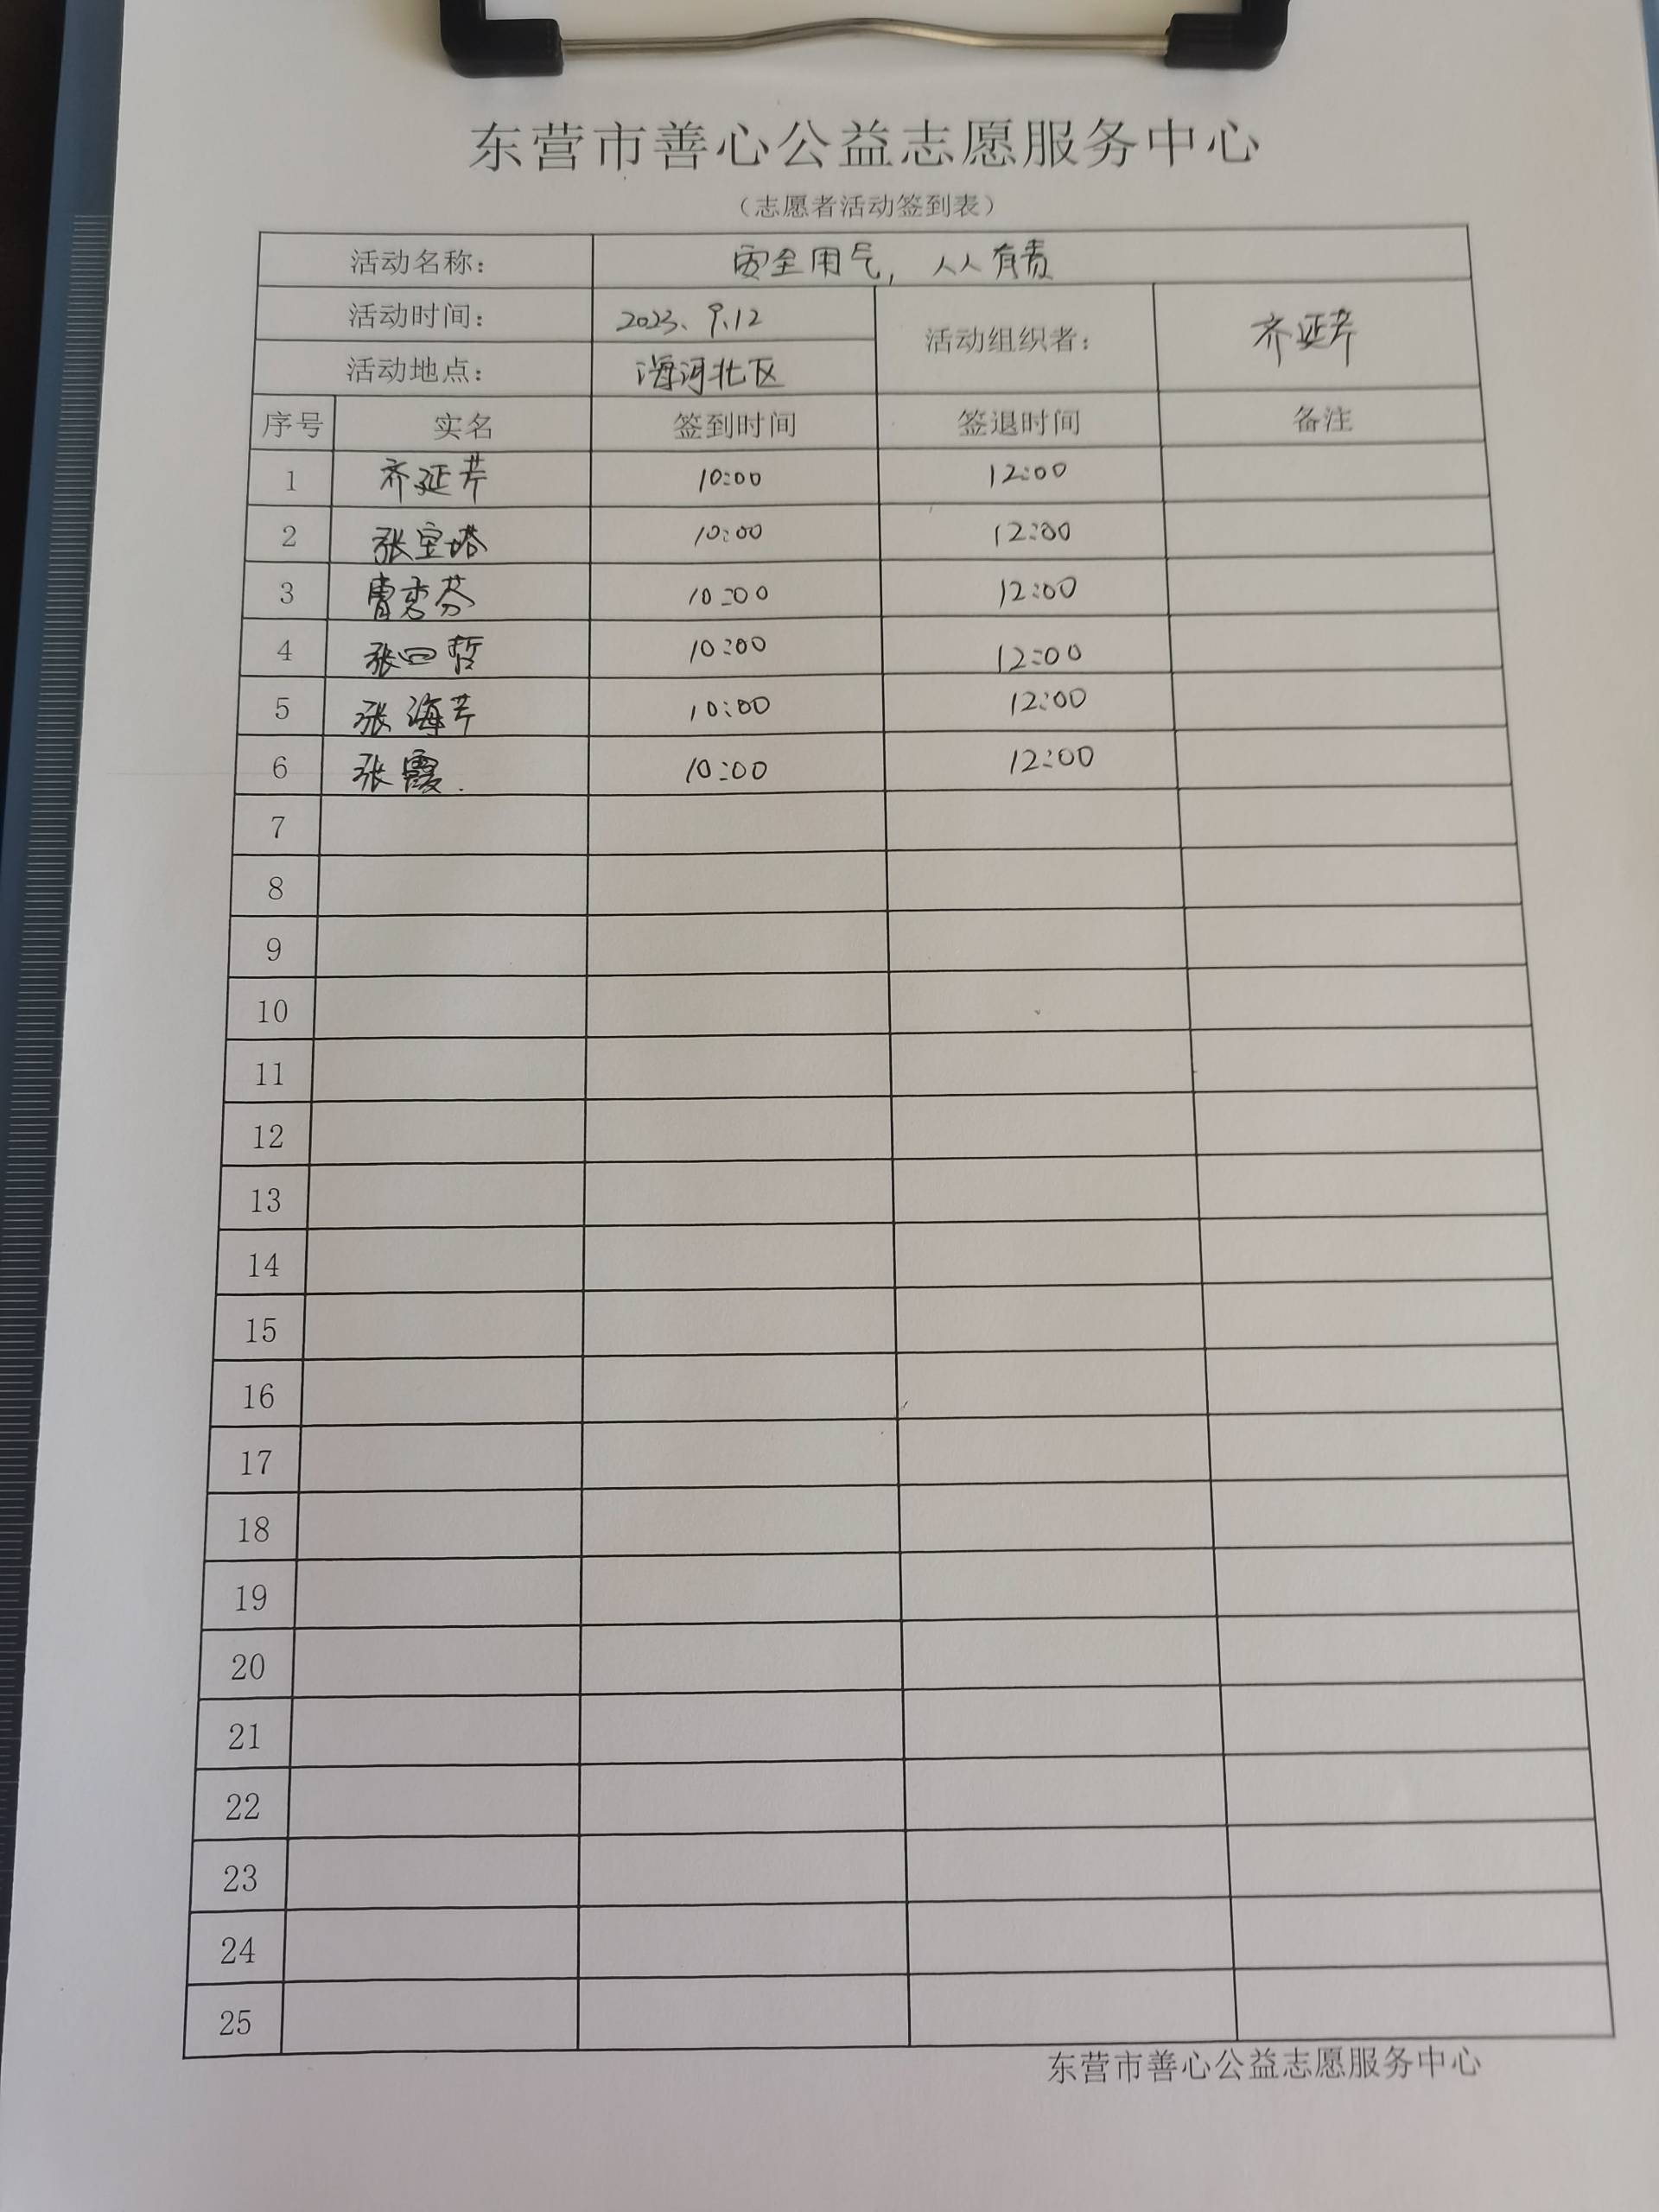 东营市善心公益志愿服务中心
（志愿者活动签到表）
活动名称： 安全用气，人人有责
活动时间： 2023、9.12 活动组织者： 齐延芹
活动地点： 海河北区
序号 实名 签到时间 签退时间 备注
1 齐延芹 10:00 12:00
2 张宝塔 10:00 12:00
3 曹秀芬 10:00 12:00
4 张四哲 10:00 12:00
5 张海芹 10:00 12:00
6 张霞. 10:00 12:00
7
8
9
10
11
12
13
14
15
16
17
18
19
20
21
22
23
24
25
东营市善心公益志愿服务中心